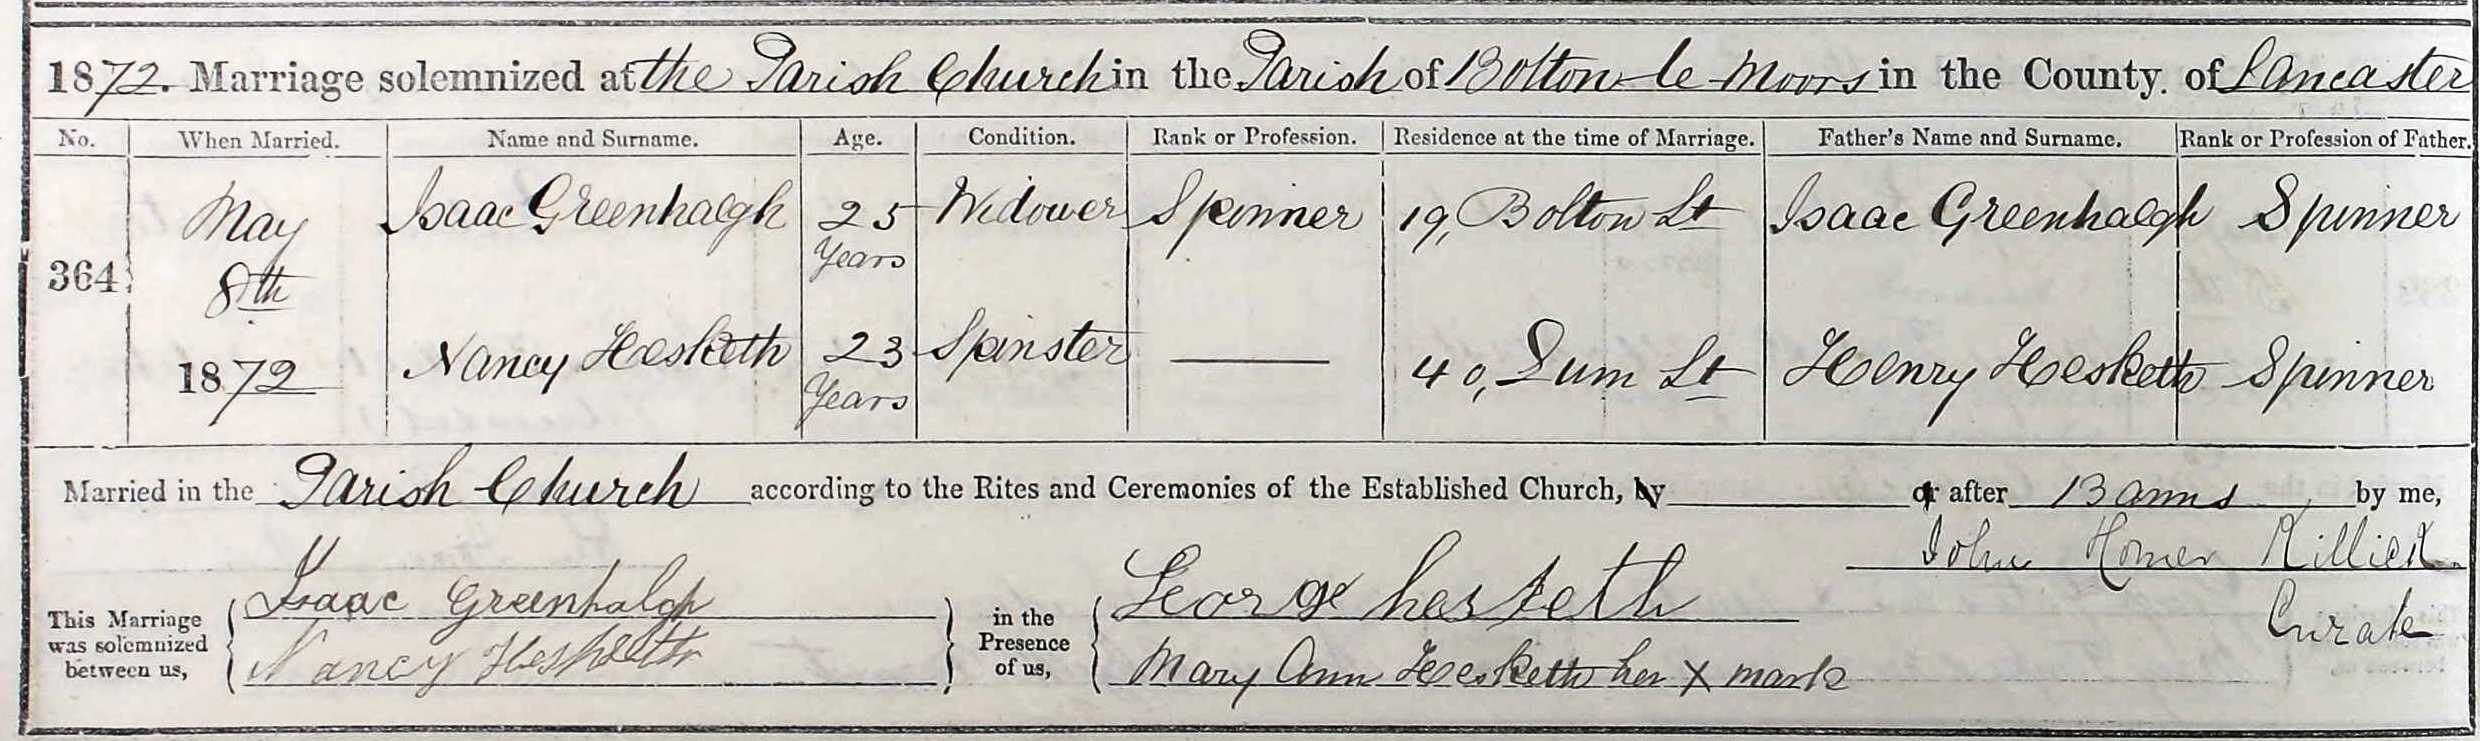 1872. Marriage solemnized at the Parish Church in the Parish of Bolton-le-Moors in the County of Lancaster
No. When Married. Name and Surname. Age. Condition. Rank or Profession. Residence at the time of Marriage. Father's Name and Surname. Rank or Profession of Father.
364 May 8th 1872 Isaac Greenhalgh 25 Years Widower Spinner 19, Bolton St Isaac Greenhalgh Spinner
Nancy Hesketh 23 Years Spinster — 40, Lum St Henry Hesketh Spinner
Married in the Parish Church according to the Rites and Ceremonies of the Established Church, by or after Banns by me,
John Homer Killick
Curate
This Marriage was solemnized between us, Isaac Greenhalgh in the Presence of us, George hesketh
Nancy Hesketh Mary Ann Hesketh her X mark